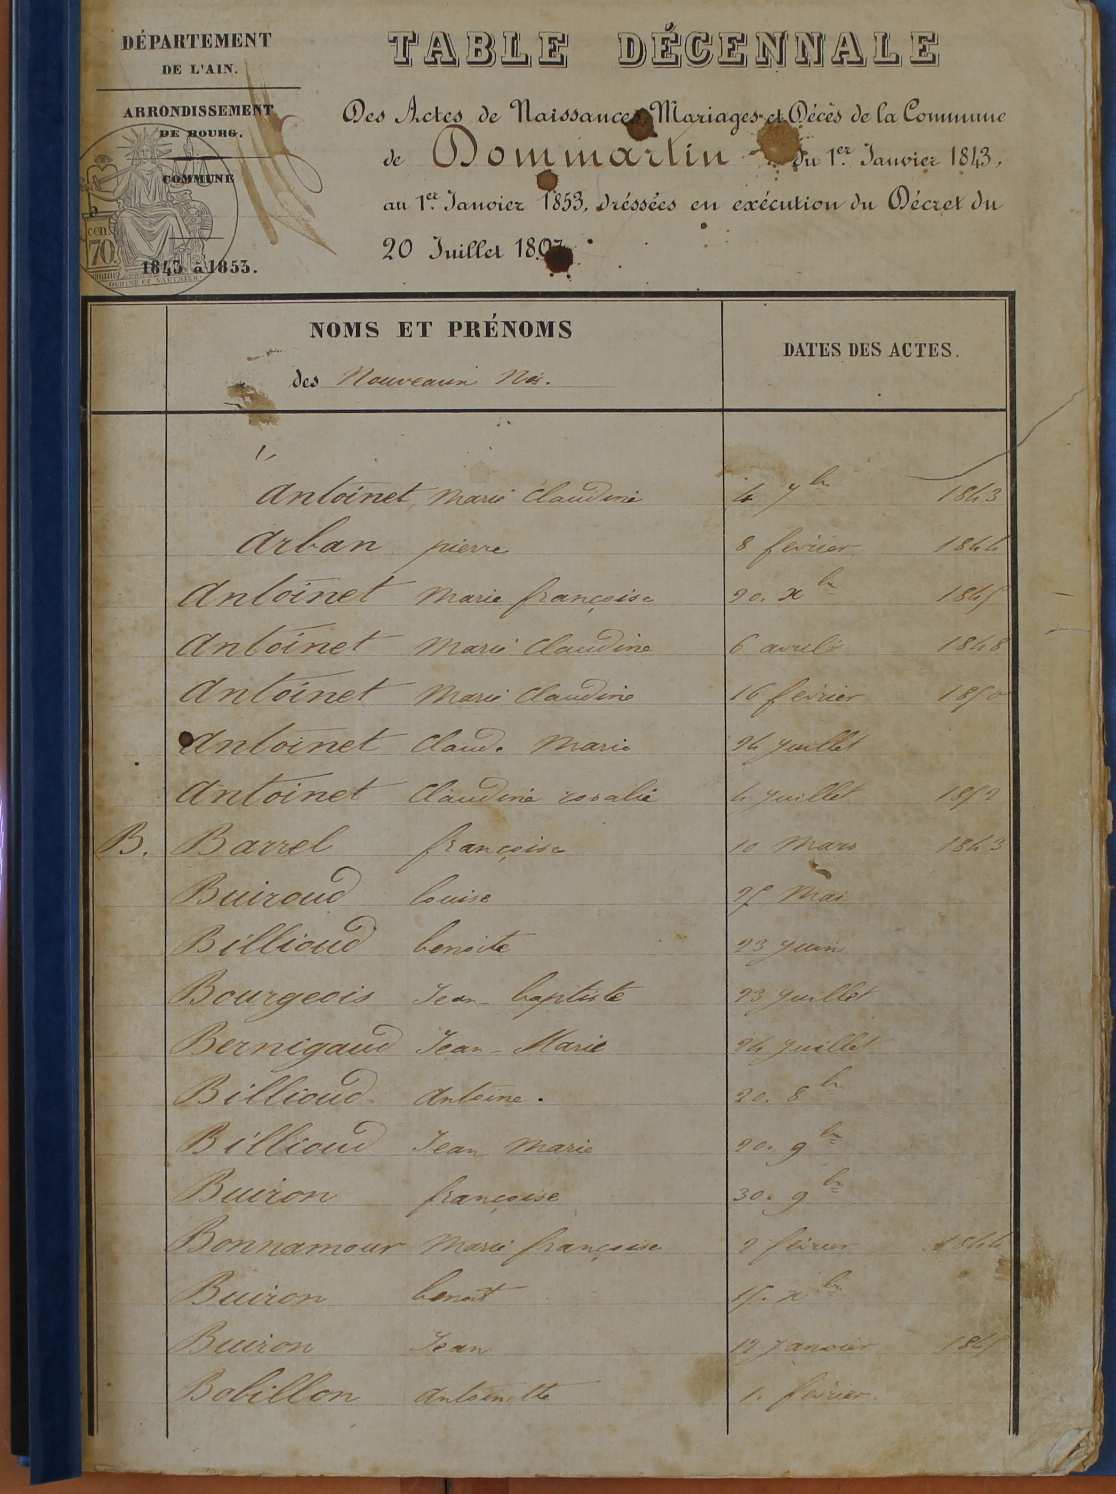 DÉPARTEMENT
DE L'AIN.
ARRONDISSEMENT
DE BOURG.
COMMUNE
1843 à 1853.
cen
70
TABLE DÉCENNALE
Des Actes de Naissances, Mariages et Décès de la Commune
de Dommartin du 1er. Janvier 1843,
au 1er. Janvier 1853, dréssées en exécution du Décret du
20 Juillet 1807.
NOMS ET PRÉNOMS
des Nouveaux Nés.
DATES DES ACTES.
Antoinet, Marie Claudine 4 7bre 1843
Arban pierre 8 fevrier 1844
Antoinet Marie françoise 20. xbre 1845
Antoinet Marie Claudine 6 avril 1848
Antoinet Marie Claudine 16 fevrier 1850
Antoinet Claude Marie 24 Juillet
Antoinet Claudine rosalie 4 Juillet 1852
B. Barrel françoise 10 Mars 1843
Buiroud louise 25 Mai
Billioud benoite 23 Juin
Bourgeois Jean-baptiste 23 Juillet
Bernigaud Jean-Marie 24 Juillet
Billioud Antoine. 20. 8bre
Billioud Jean Marie 20. 9bre
Buiron françoise 30. 9bre
Bonnamour Marie françoise 2 février 1844
Buiron benoit 15. xbre
Buiron Jean 12 Janvier 1845
Bobillon Antoinette 1. fevrier.